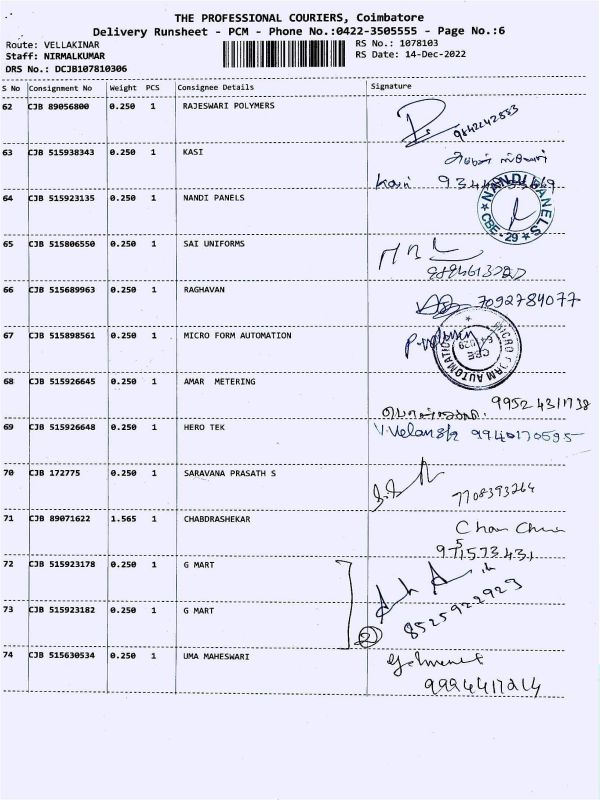 THE PROFESSIONAL COURIERS, Coimbatore
Delivery Runsheet - PCM - Phone No.:0422-3505555 - Page No.:6
Route: VELLAKINAR
RS No.: 1078103
Staff: NIRMALKUMAR
RS Date: 14-Dec-2022
DRS No.: DCJB107810306
S No Consignment No Weight PCS Consignee Details Signature
62 CJB 89056800 0.250 1 RAJESWARI POLYMERS
9842242583
63 CJB 515938343 0.250 1 KASI
64 CJB 515923135 0.250 1 NANDI PANELS
NANDI PANELS
CBE-29
65 CJB 515806550 0.250 1 SAI UNIFORMS
66 CJB 515689963 0.250 1 RAGHAVAN
7092784077
67 CJB 515898561 0.250 1 MICRO FORM AUTOMATION
68 CJB 515926645 0.250 1 AMAR METERING
99524 31738
69 CJB 515926648 0.250 1 HERO TEK
9940170595
70 CJB 172775 0.250 1 SARAVANA PRASATH S
7708393264
71 CJB 89071622 1.565 1 CHABDRASHEKAR
72 CJB 515923178 0.250 1 G MART
73 CJB 515923182 0.250 1 G MART
8525922923
2
74 CJB 515630534 0.250 1 UMA MAHESWARI
9994417214